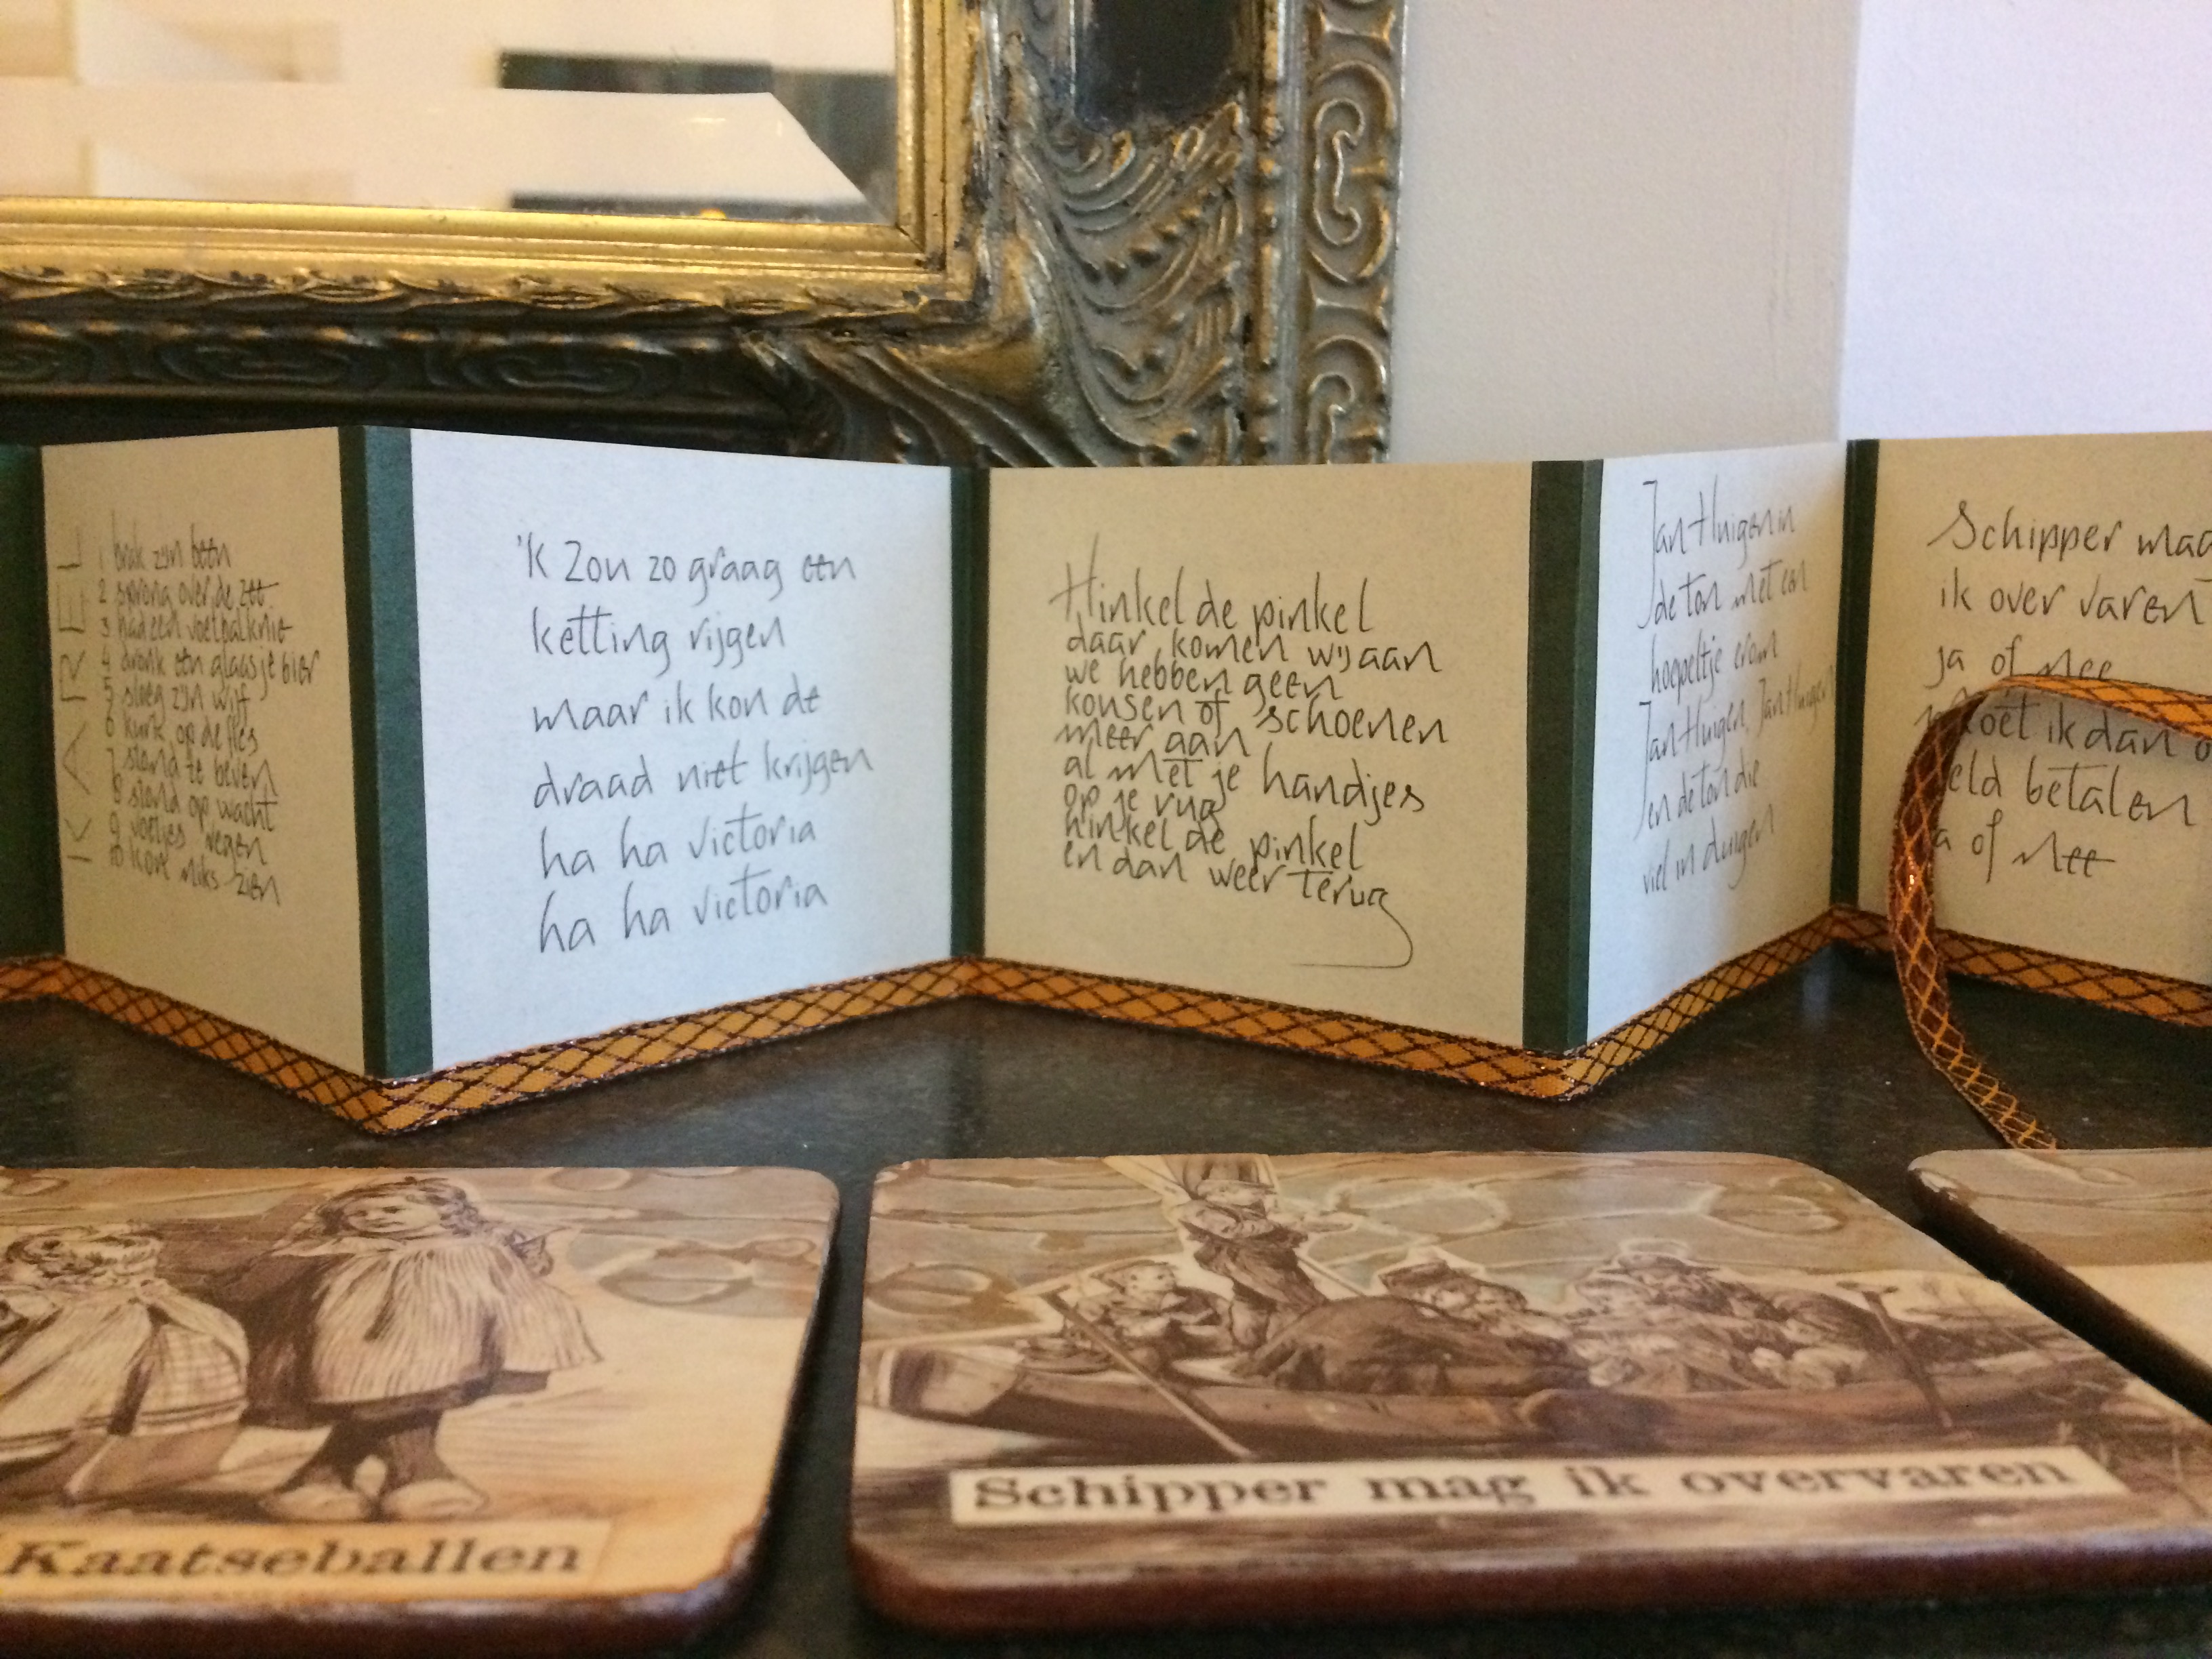 IK KAREL
1 brak zijn been
2 sprong over de zee
3 had een voetbalknie
4 dronk een glaasje bier
5 sloeg zijn wijf
6 kurk op de fles
7 stond te beven
8 stond op wacht
9 voetjes vegen
10 kon niks zien
'K Zou zo graag een
ketting rijgen
maar ik kon de
draad niet krijgen
ha ha victoria
ha ha victoria
Hinkel de pinkel
daar komen wij aan
we hebben geen
kousen of schoenen
meer aan
al met je handjes
op je rug
hinkel de pinkel
en dan weer terug
Jan Huigen in
de ton met een
hoepeltje erom
Jan Huigen, Jan Huigen
en de ton die
viel in duigen
Schipper mag
ik over varen
ja of nee
Moet ik dan
geld betalen
ja of nee
Kaatseballen
Schipper mag ik overvaren